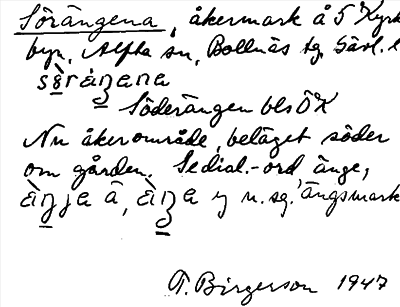 Sörängena, åkermark å 5 Kyrk
byn, Alfta sn, Bollnäs tg, Gävl. l
Söderängen bls ÖK
Nu åkerområde, beläget söder
om gården. Se dial.-ord änge,
n. sg. 'ängsmark
T. Birgerson 1947